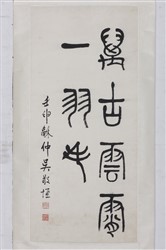 萬古雲霄
一羽毛
壬申龝仲吳敬恆